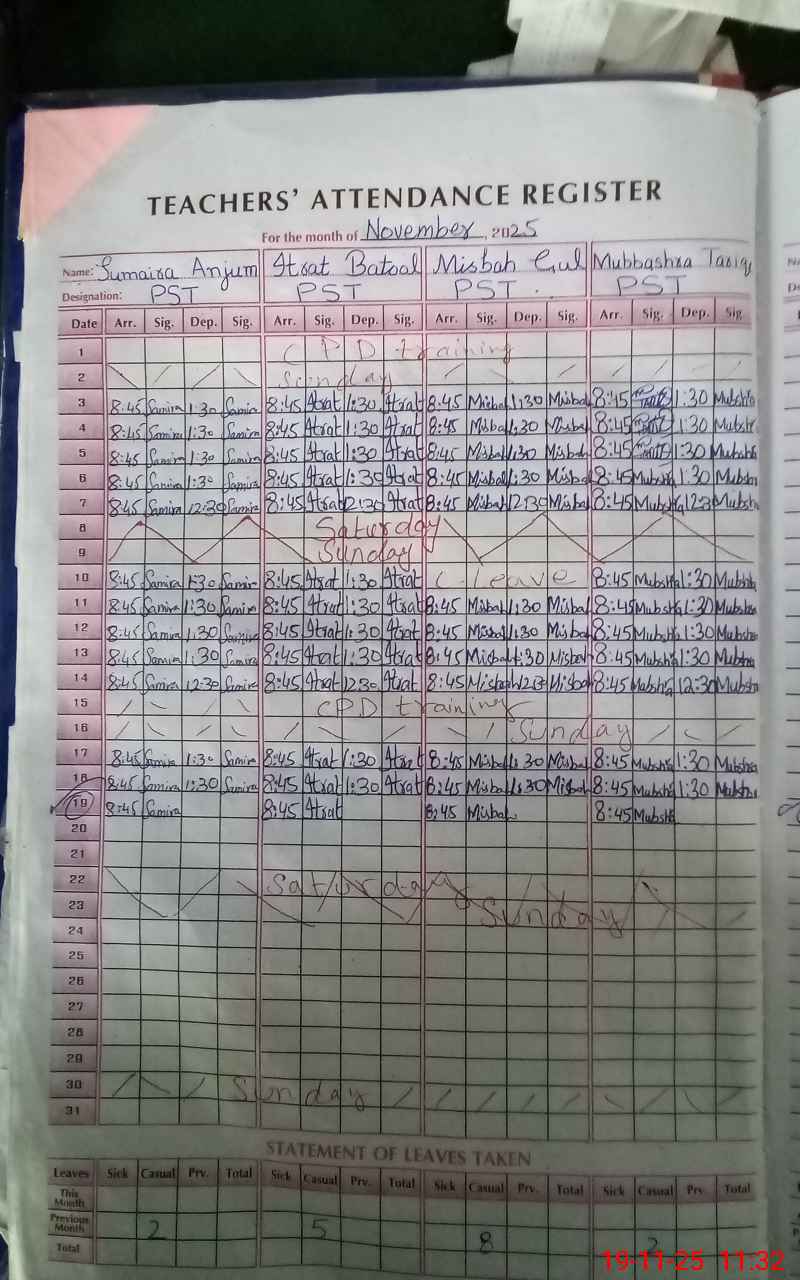 TEACHERS' ATTENDANCE REGISTER
For the month of November, 2025
Name: Sumaira Anjum Itrat Batool Misbah Gul Mubbashra Tariq
Designation: PST PST PST. PST
Date Arr. Sig. Dep. Sig. Arr. Sig. Dep. Sig. Arr. Sig. Dep. Sig. Arr. Sig. Dep. Sig
1 CPD training
2 Sunday
3 8:45 Samira 1:30 Samira 8:45 Itrat 1:30 Itrat 8:45 Misbah 1:30 Misbah 8:45 1:30 Mubshra
4 8:45 Samira 1:30 Samira 8:45 Itrat 1:30 Itrat 8:45 Misbah 1:30 Misbah 8:45 1:30 Mubshra
5 8:45 Samira 1:30 Samira 8:45 Itrat 1:30 Itrat 8:45 Misbah 1:30 Misbah 8:45 1:30 Mubshra
6 8:45 Samira 1:30 Samira 8:45 Itrat 1:30 Itrat 8:45 Misbah 1:30 Misbah 8:45 Mubshra 1:30 Mubshra
7 8:45 Samira 12:30 Samira 8:45 Itrat 12:30 Itrat 8:45 Misbah 12:30 Misbah 8:45 Mubshra 12:30 Mubshra
8 Saturday
9 Sunday
10 8:45 Samira 1:30 Samira 8:45 Itrat 1:30 Itrat C. Leave 8:45 Mubshra 1:30 Mubshra
11 8:45 Samira 1:30 Samira 8:45 Itrat 1:30 Itrat 8:45 Misbah 1:30 Misbah 8:45 Mubshra 1:30 Mubshra
12 8:45 Samira 1:30 Samira 8:45 Itrat 1:30 Itrat 8:45 Misbah 1:30 Misbah 8:45 Mubshra 1:30 Mubshra
13 8:45 Samira 1:30 Samira 8:45 Itrat 1:30 Itrat 8:45 Misbah 1:30 Misbah 8:45 Mubshra 1:30 Mubshra
14 8:45 Samira 12:30 Samira 8:45 Itrat 12:30 Itrat 8:45 Misbah 12:30 Misbah 8:45 Mubshra 12:30 Mubshra
15 CPD training
16 Sunday
17 8:45 Samira 1:30 Samira 8:45 Itrat 1:30 Itrat 8:45 Misbah 1:30 Misbah 8:45 Mubshra 1:30 Mubshra
18 8:45 Samira 1:30 Samira 8:45 Itrat 1:30 Itrat 8:45 Misbah 1:30 Misbah 8:45 Mubshra 1:30 Mubshra
19 8:45 Samira 8:45 Itrat 8:45 Misbah 8:45 Mubshra
20
21
22 Saturday
23 Sunday
24
25
26
27
28
29
30 Sunday
31
STATEMENT OF LEAVES TAKEN
Leaves Sick Casual Prv. Total Sick Casual Prv. Total Sick Casual Prv. Total Sick Casual Prv. Total
This Month
Previous Month 2 5 8 2
Total
19-11-25 11:32